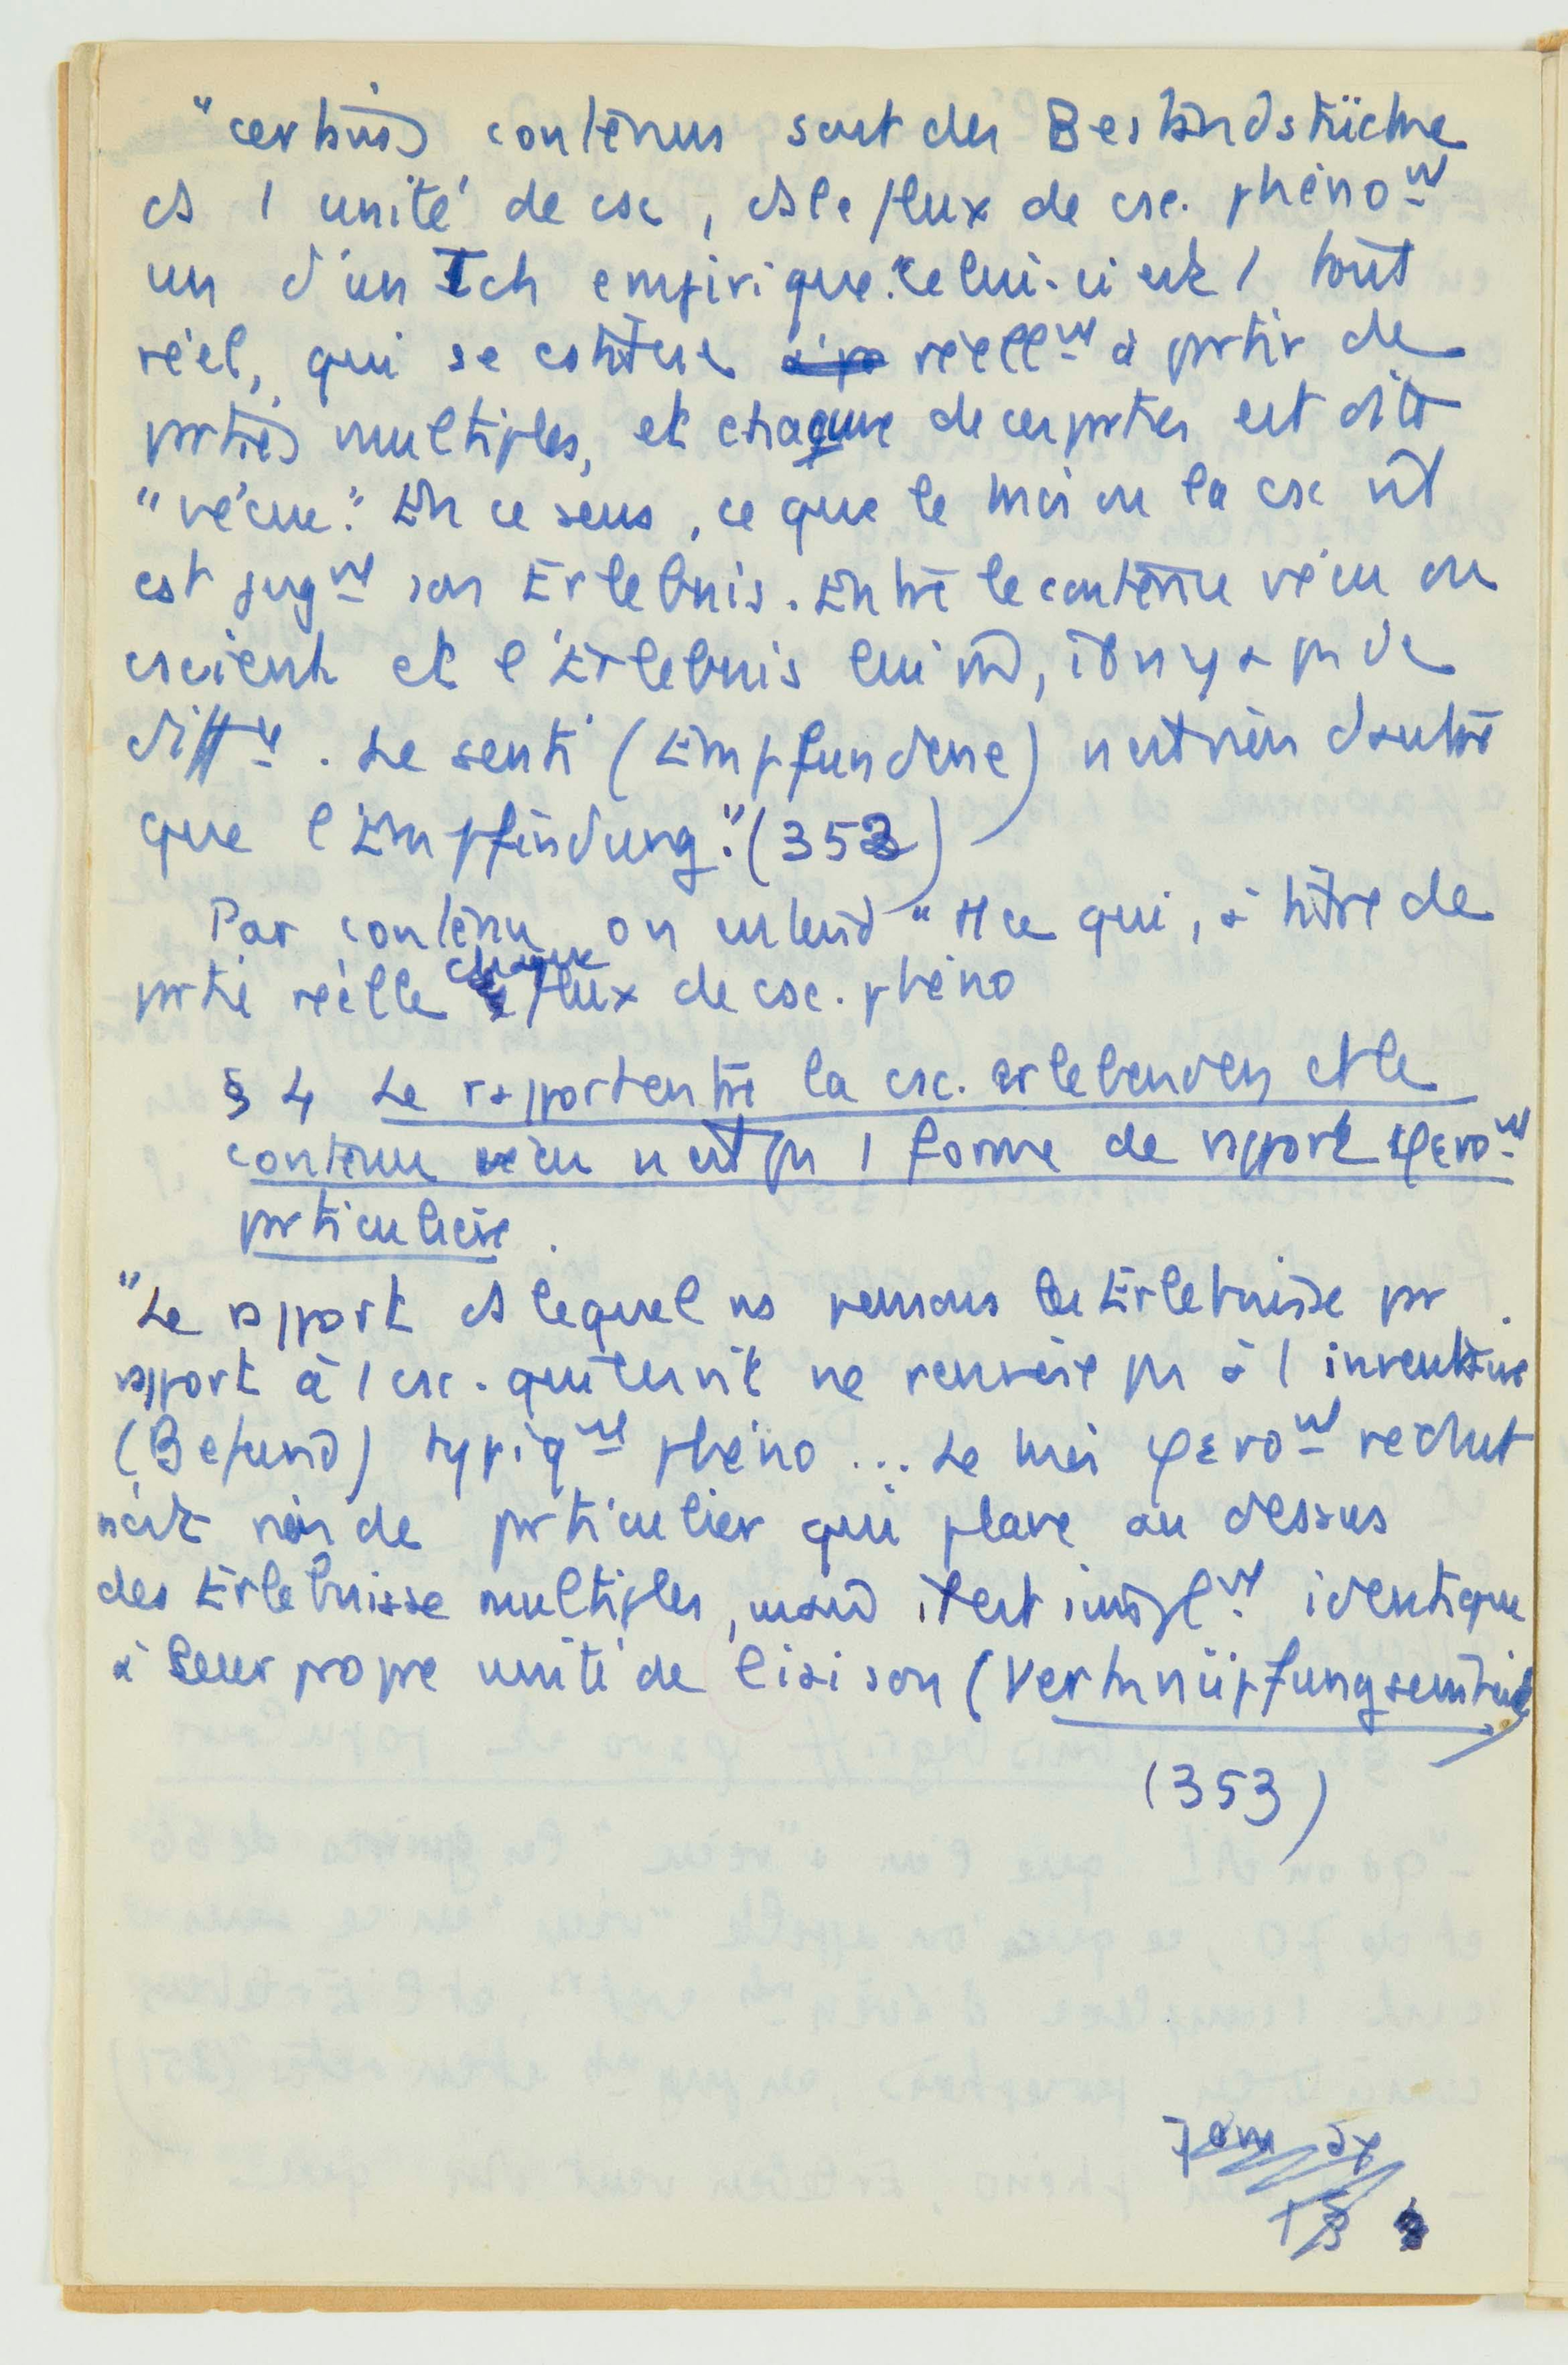 "certains contenus sont des Bestandstücke
ds 1 unité de csc, ds le flux de csc. phéno^nt
un d'un Ich empirique. celui-ci est 1 tout
réel, qui se cstitue réell^nt à prtir de
prties multiples, et chacune de ces prties est dite
"vécue." En ce sens, ce que le moi ou la csc vit
est jug^nt son Erlebnis. Entre le contenu vécu ou
cscient et l'Erlebnis lui mê, il n y a ps de
diff^ce. Le senti (Empfundene) n'est rien d'autre
que l'Empfindung." (352)
Par contenu on entend " tt ce qui, à titre de
prtie réelle chaque flux de csc. phéno
§ 4 Le rapport entre la csc. erlebenden et le
contenu vécu n'est ps 1 forme de rapport φενο^nt
prticulière.
"Le rapport ds lequel ns pensons les Erlebnisse pr
rapport à 1 csc. qui les vit ne renvoie ps à 1 inventaire
(Befund) typiq^nt phéno ... Le moi φενο^nt réduit
n'est rien de prticulier qui plane au dessus
des Erlebnisse multiples, mais il est simpl^nt identique
à leur propre unité de liaison (Verknüpfungseinheit)
(353)